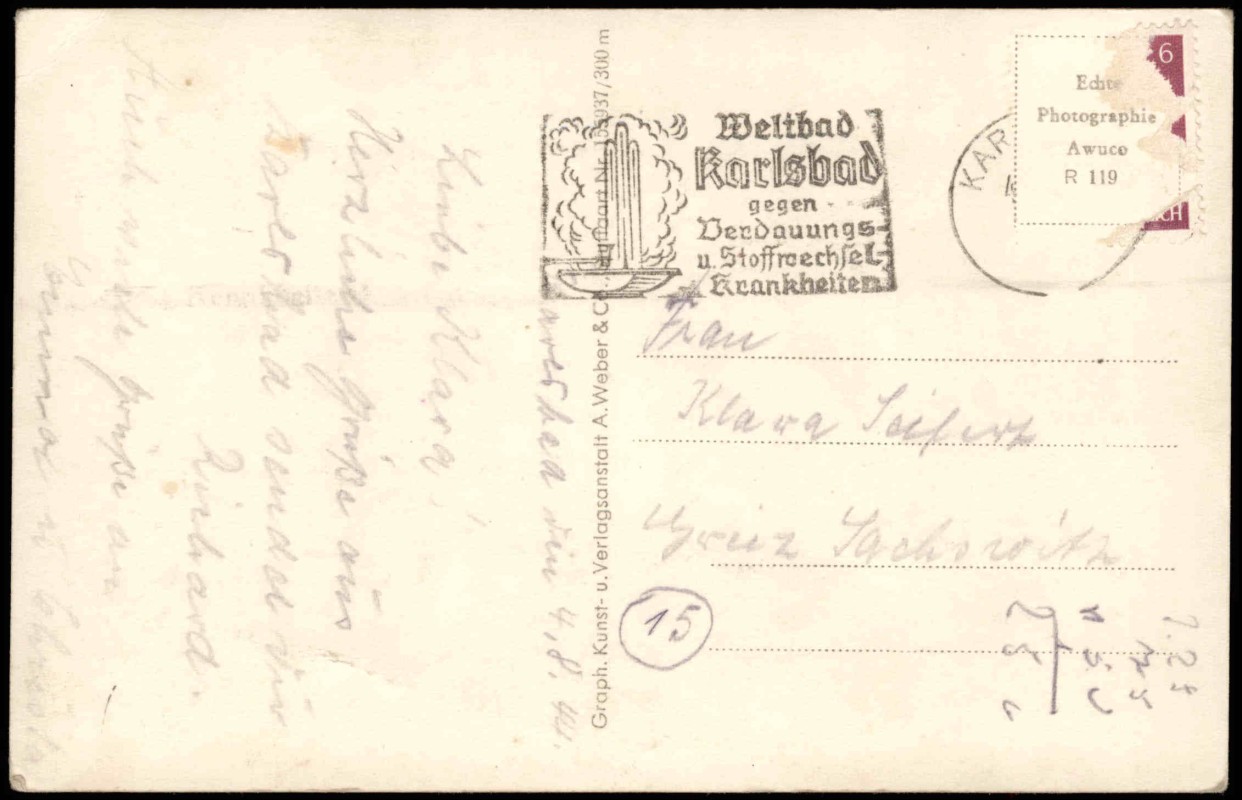 Karlsbad den 4.8.44.
Liebe Klara!
Herzliche Grüße aus
Karlsbad sendet dir
Auch viele Grüße an
Graph. Kunst- u. Verlagsanstalt A. Weber & Co., Stuttgart Nr. 937/300 m
Weltbad
Karlsbad
gegen
Verdauungs-
u. Stoffwechsel-
Krankheiten
KAR
6
Echte
Photographie
Awuco
R 119
ICH
Frau
Klara Seifert
Greiz Sachswitz
15